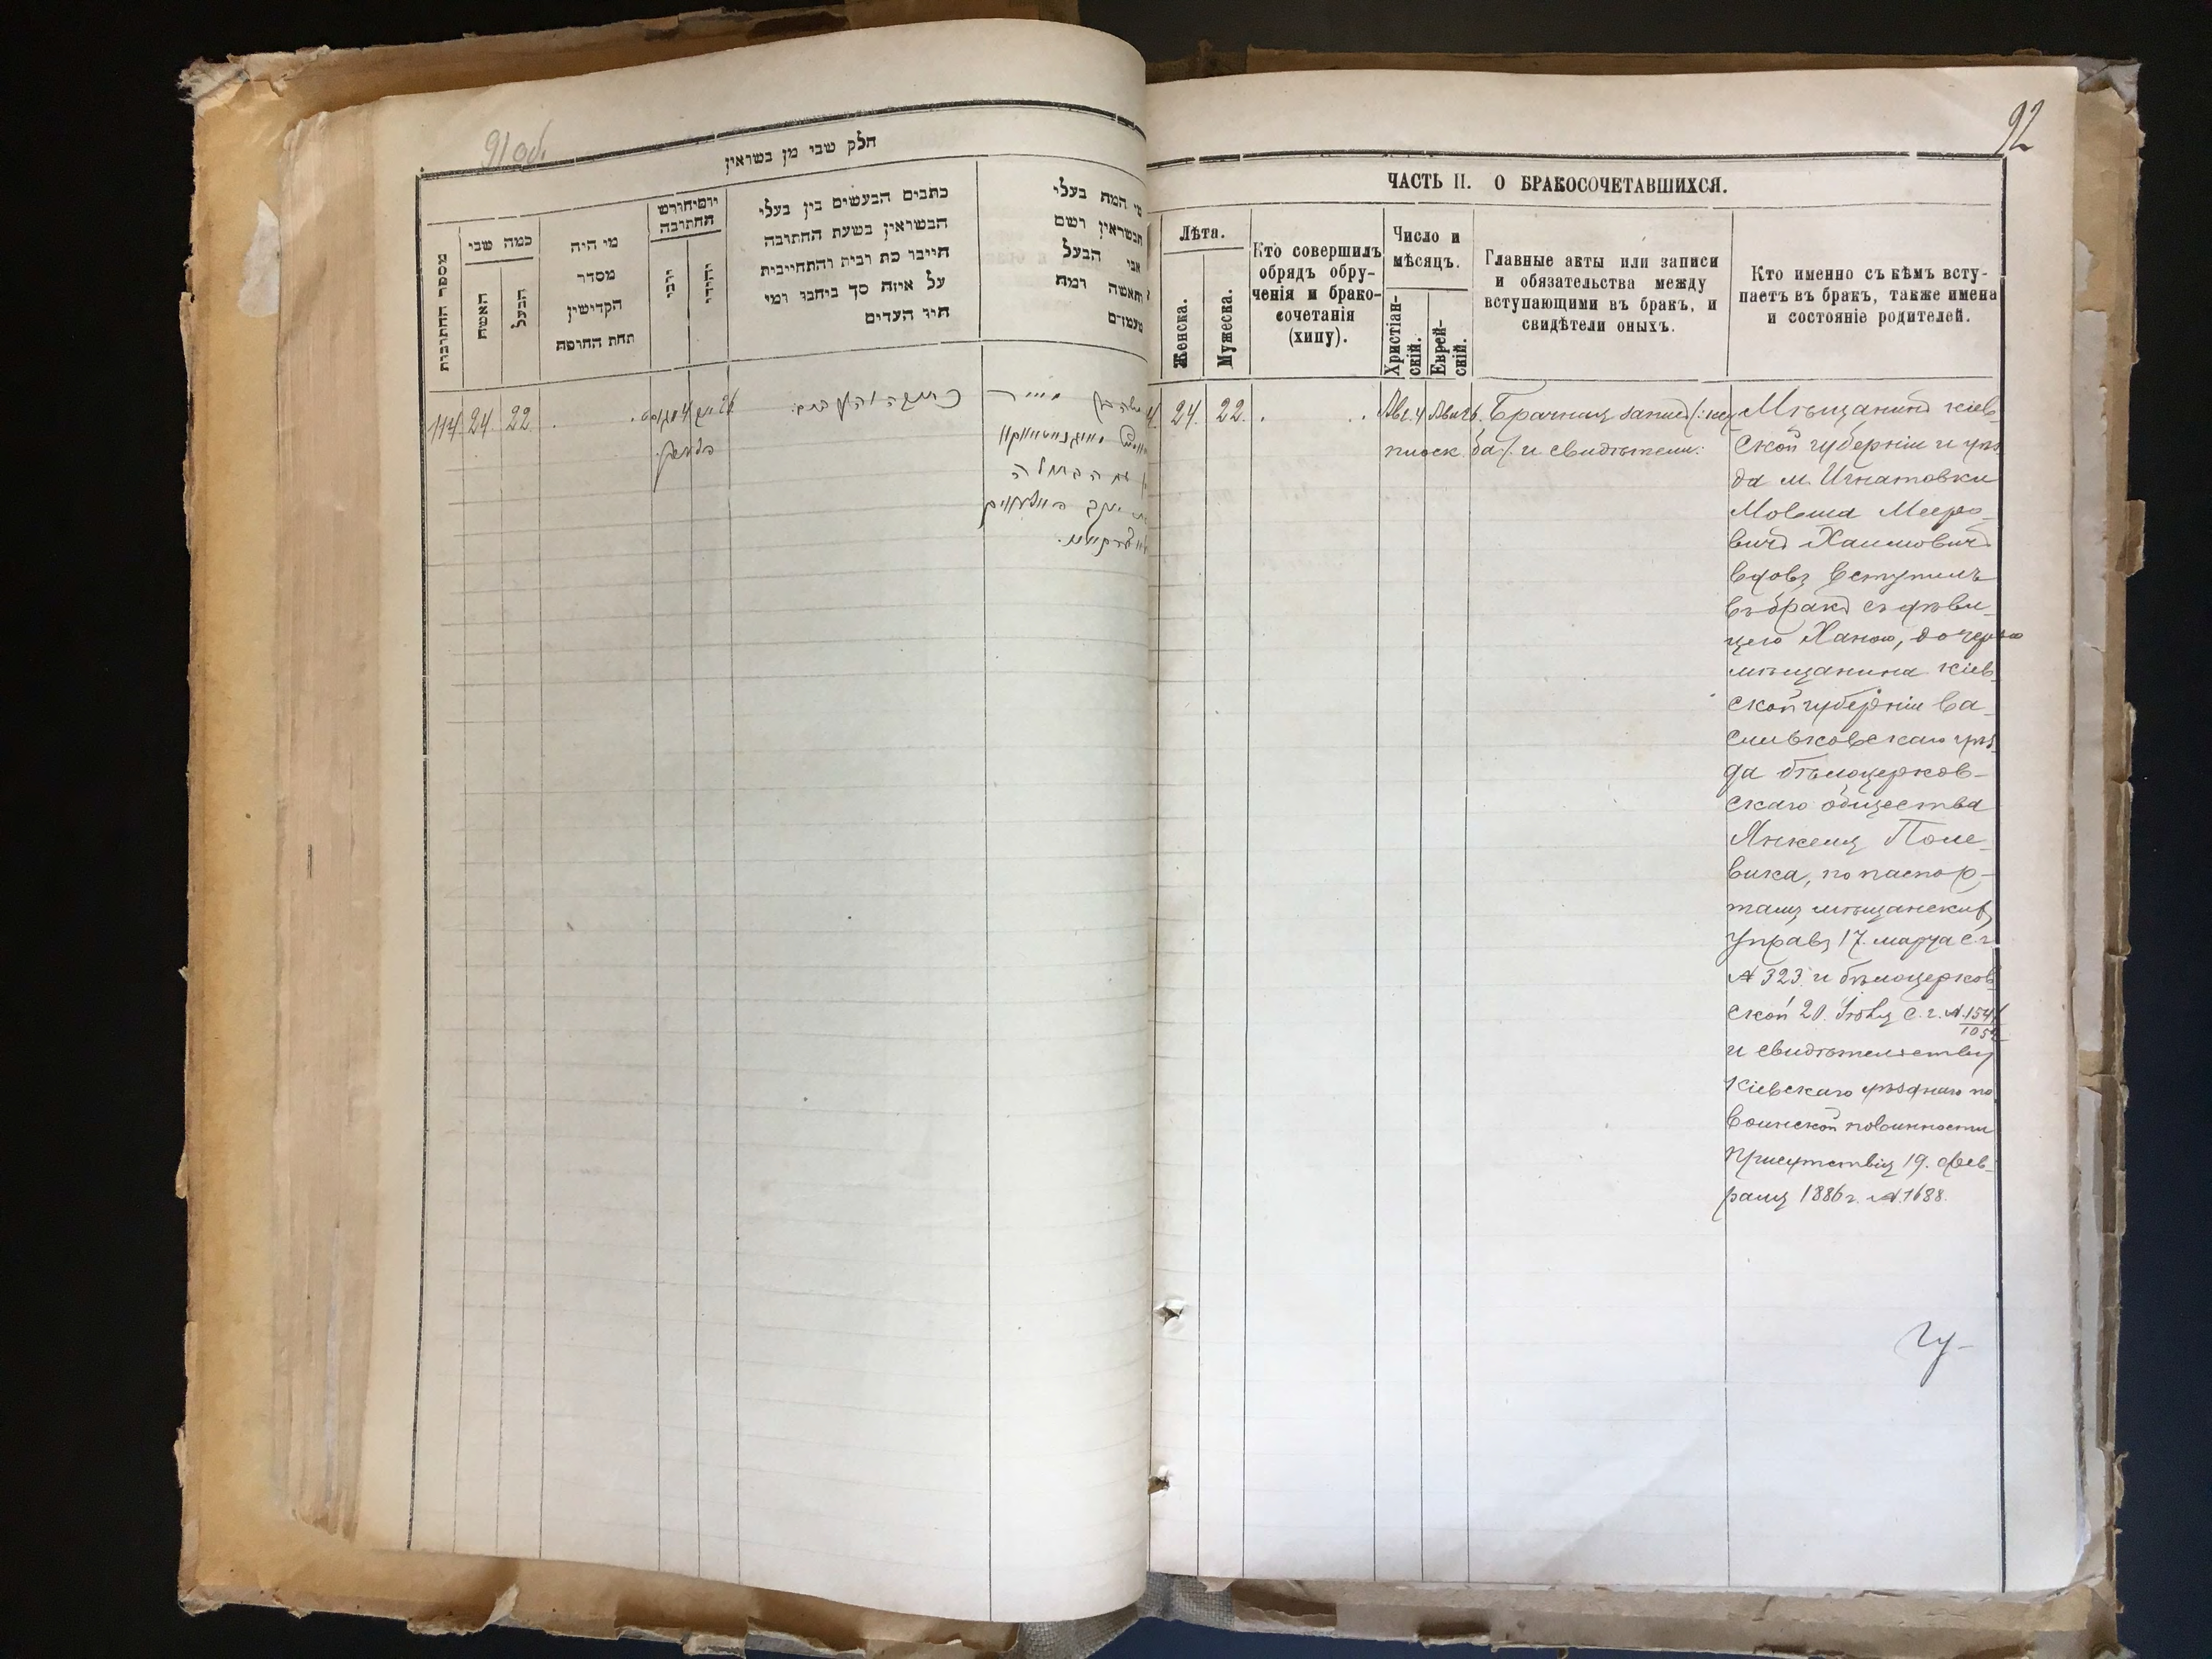 91 об.
חלק שני מן נשואין
מספר החתונות
כמה שני
האשה
הבעל
מי היה
מסדר
הקדישין
תחת החופה
יום וחודש
החתונה
יוני
יהודי
כתבים הנעשים בין בעלי
הנשואין בשעת החתונה
חייבו כת רבית והתחייבית
על איזה סך ביחבו ומי
היו העדים
מי המה בעלי
הנשואין ושם
אבי הבעל
והאשה ומה
מעמדם
114. 24. 22.
כתובה והעדים:
92
ЧАСТЬ II. О БРАКОСОЧЕТАВШИХСЯ.
Лѣта.
Женска.
Мужеска.
Кто совершилъ
обрядъ обру-
ченія и брако-
сочетанія
(хипу).
Число и
мѣсяцъ.
Христіан-
скій.
Еврей-
скій.
Главные акты или записи
и обязательства между
вступающими въ брак, и
свидѣтели оныхъ.
Кто именно съ кѣмъ всту-
паетъ въ бракъ, также имена
и состояніе родителей.
24. 22. Авг. 4 Авъ 26. Брачная запись (: кту-
ба / и свидѣтели:
Мѣщанинъ кіев-
ской губерніи и уѣз-
да м. Игнатовки
Мовша Мееро-
вичъ Хаимовичъ
вдовъ вступилъ
въ бракъ съ дѣви-
цею Ханою, дочерью
мѣщанина кіев-
ской губерніи Ва-
сильковскаго уѣз-
да бѣлоцерков-
скаго общества
Янкеля Поле-
вика, по паспор-
тамъ мѣщанскихъ
Управъ 17. марта с.г.
№ 323 и бѣлоцерков-
ской 20. Іюля с.г. №
и свидѣтельству
Кіевскаго уѣзднаго по
воинской повинности
Присутствія 19. фев-
раля 1886 г. №. 1688.